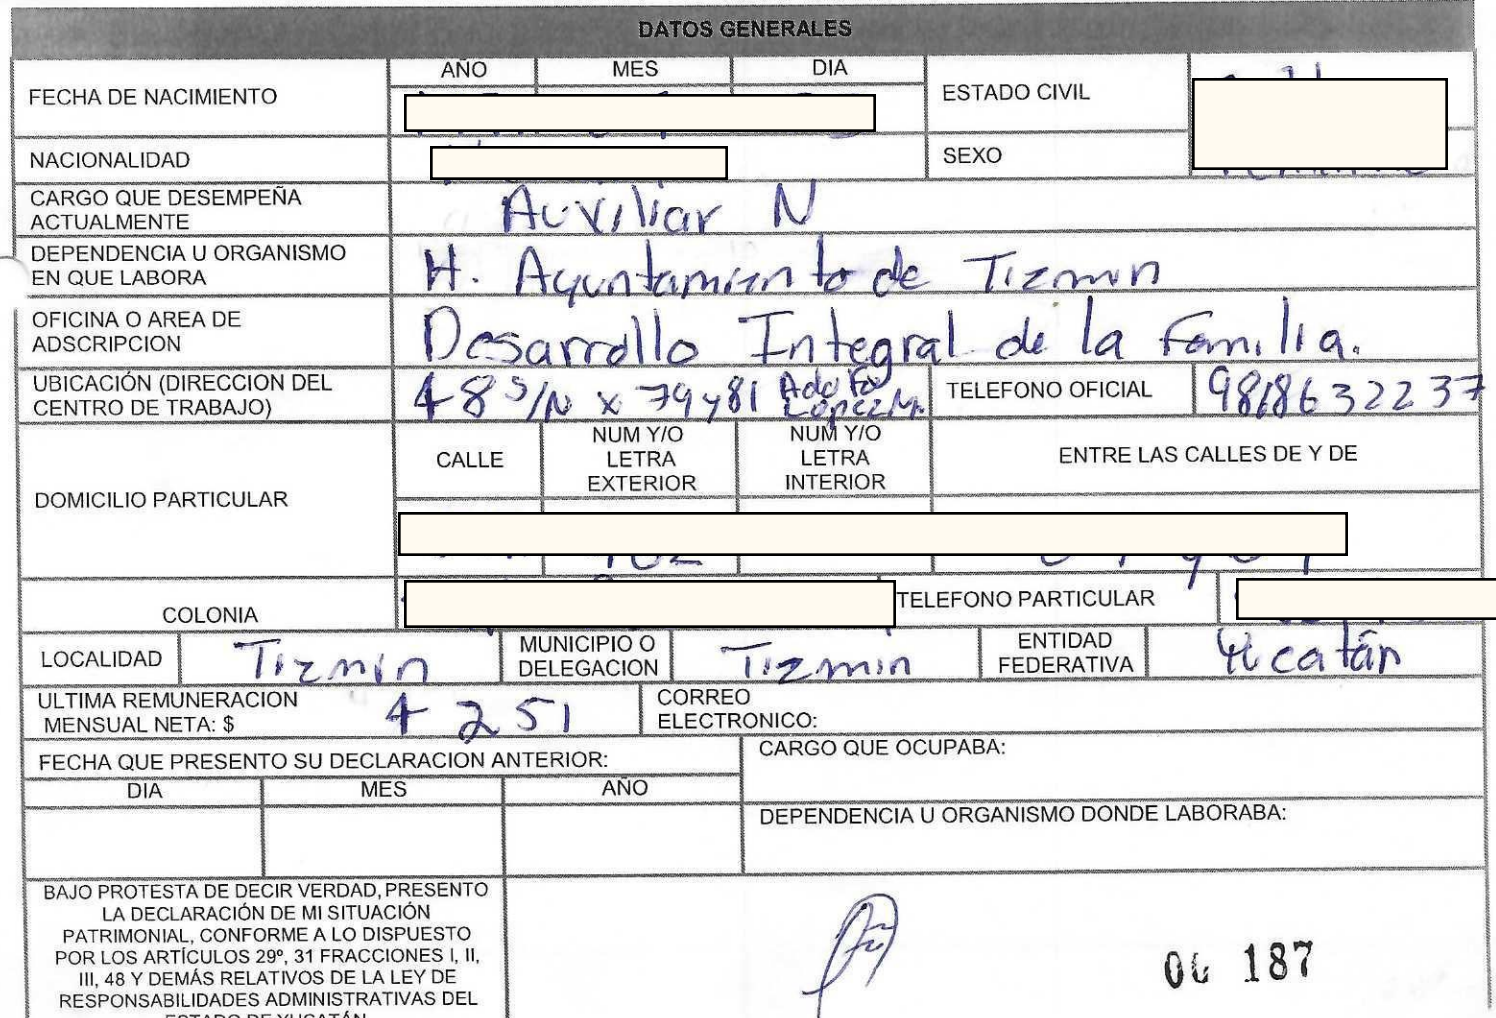 DATOS GENERALES
FECHA DE NACIMIENTO
AÑO MES DIA
ESTADO CIVIL
NACIONALIDAD
SEXO
CARGO QUE DESEMPEÑA
ACTUALMENTE
Auxiliar N
DEPENDENCIA U ORGANISMO
EN QUE LABORA
H. Ayuntamiento de Tizmin
OFICINA O AREA DE
ADSCRIPCION
Desarrollo Integral de la Familia.
UBICACIÓN (DIRECCION DEL
CENTRO DE TRABAJO)
48 S/N x 79 y 81 Adolfo
López M.
TELEFONO OFICIAL
9818632237
DOMICILIO PARTICULAR
CALLE
NUM Y/O
LETRA
EXTERIOR
NUM Y/O
LETRA
INTERIOR
ENTRE LAS CALLES DE Y DE
COLONIA
TELEFONO PARTICULAR
LOCALIDAD
Tizmin
MUNICIPIO O
DELEGACION
Tizmin
ENTIDAD
FEDERATIVA
Yucatán
ULTIMA REMUNERACION
MENSUAL NETA: $
4251
CORREO
ELECTRONICO:
FECHA QUE PRESENTO SU DECLARACION ANTERIOR:
DIA MES AÑO
CARGO QUE OCUPABA:
DEPENDENCIA U ORGANISMO DONDE LABORABA:
BAJO PROTESTA DE DECIR VERDAD, PRESENTO
LA DECLARACIÓN DE MI SITUACIÓN
PATRIMONIAL, CONFORME A LO DISPUESTO
POR LOS ARTÍCULOS 29º, 31 FRACCIONES I, II,
III, 48 Y DEMÁS RELATIVOS DE LA LEY DE
RESPONSABILIDADES ADMINISTRATIVAS DEL
ESTADO DE YUCATÁN
187